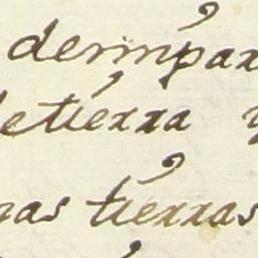 desmpar
detierra y
nas tierras